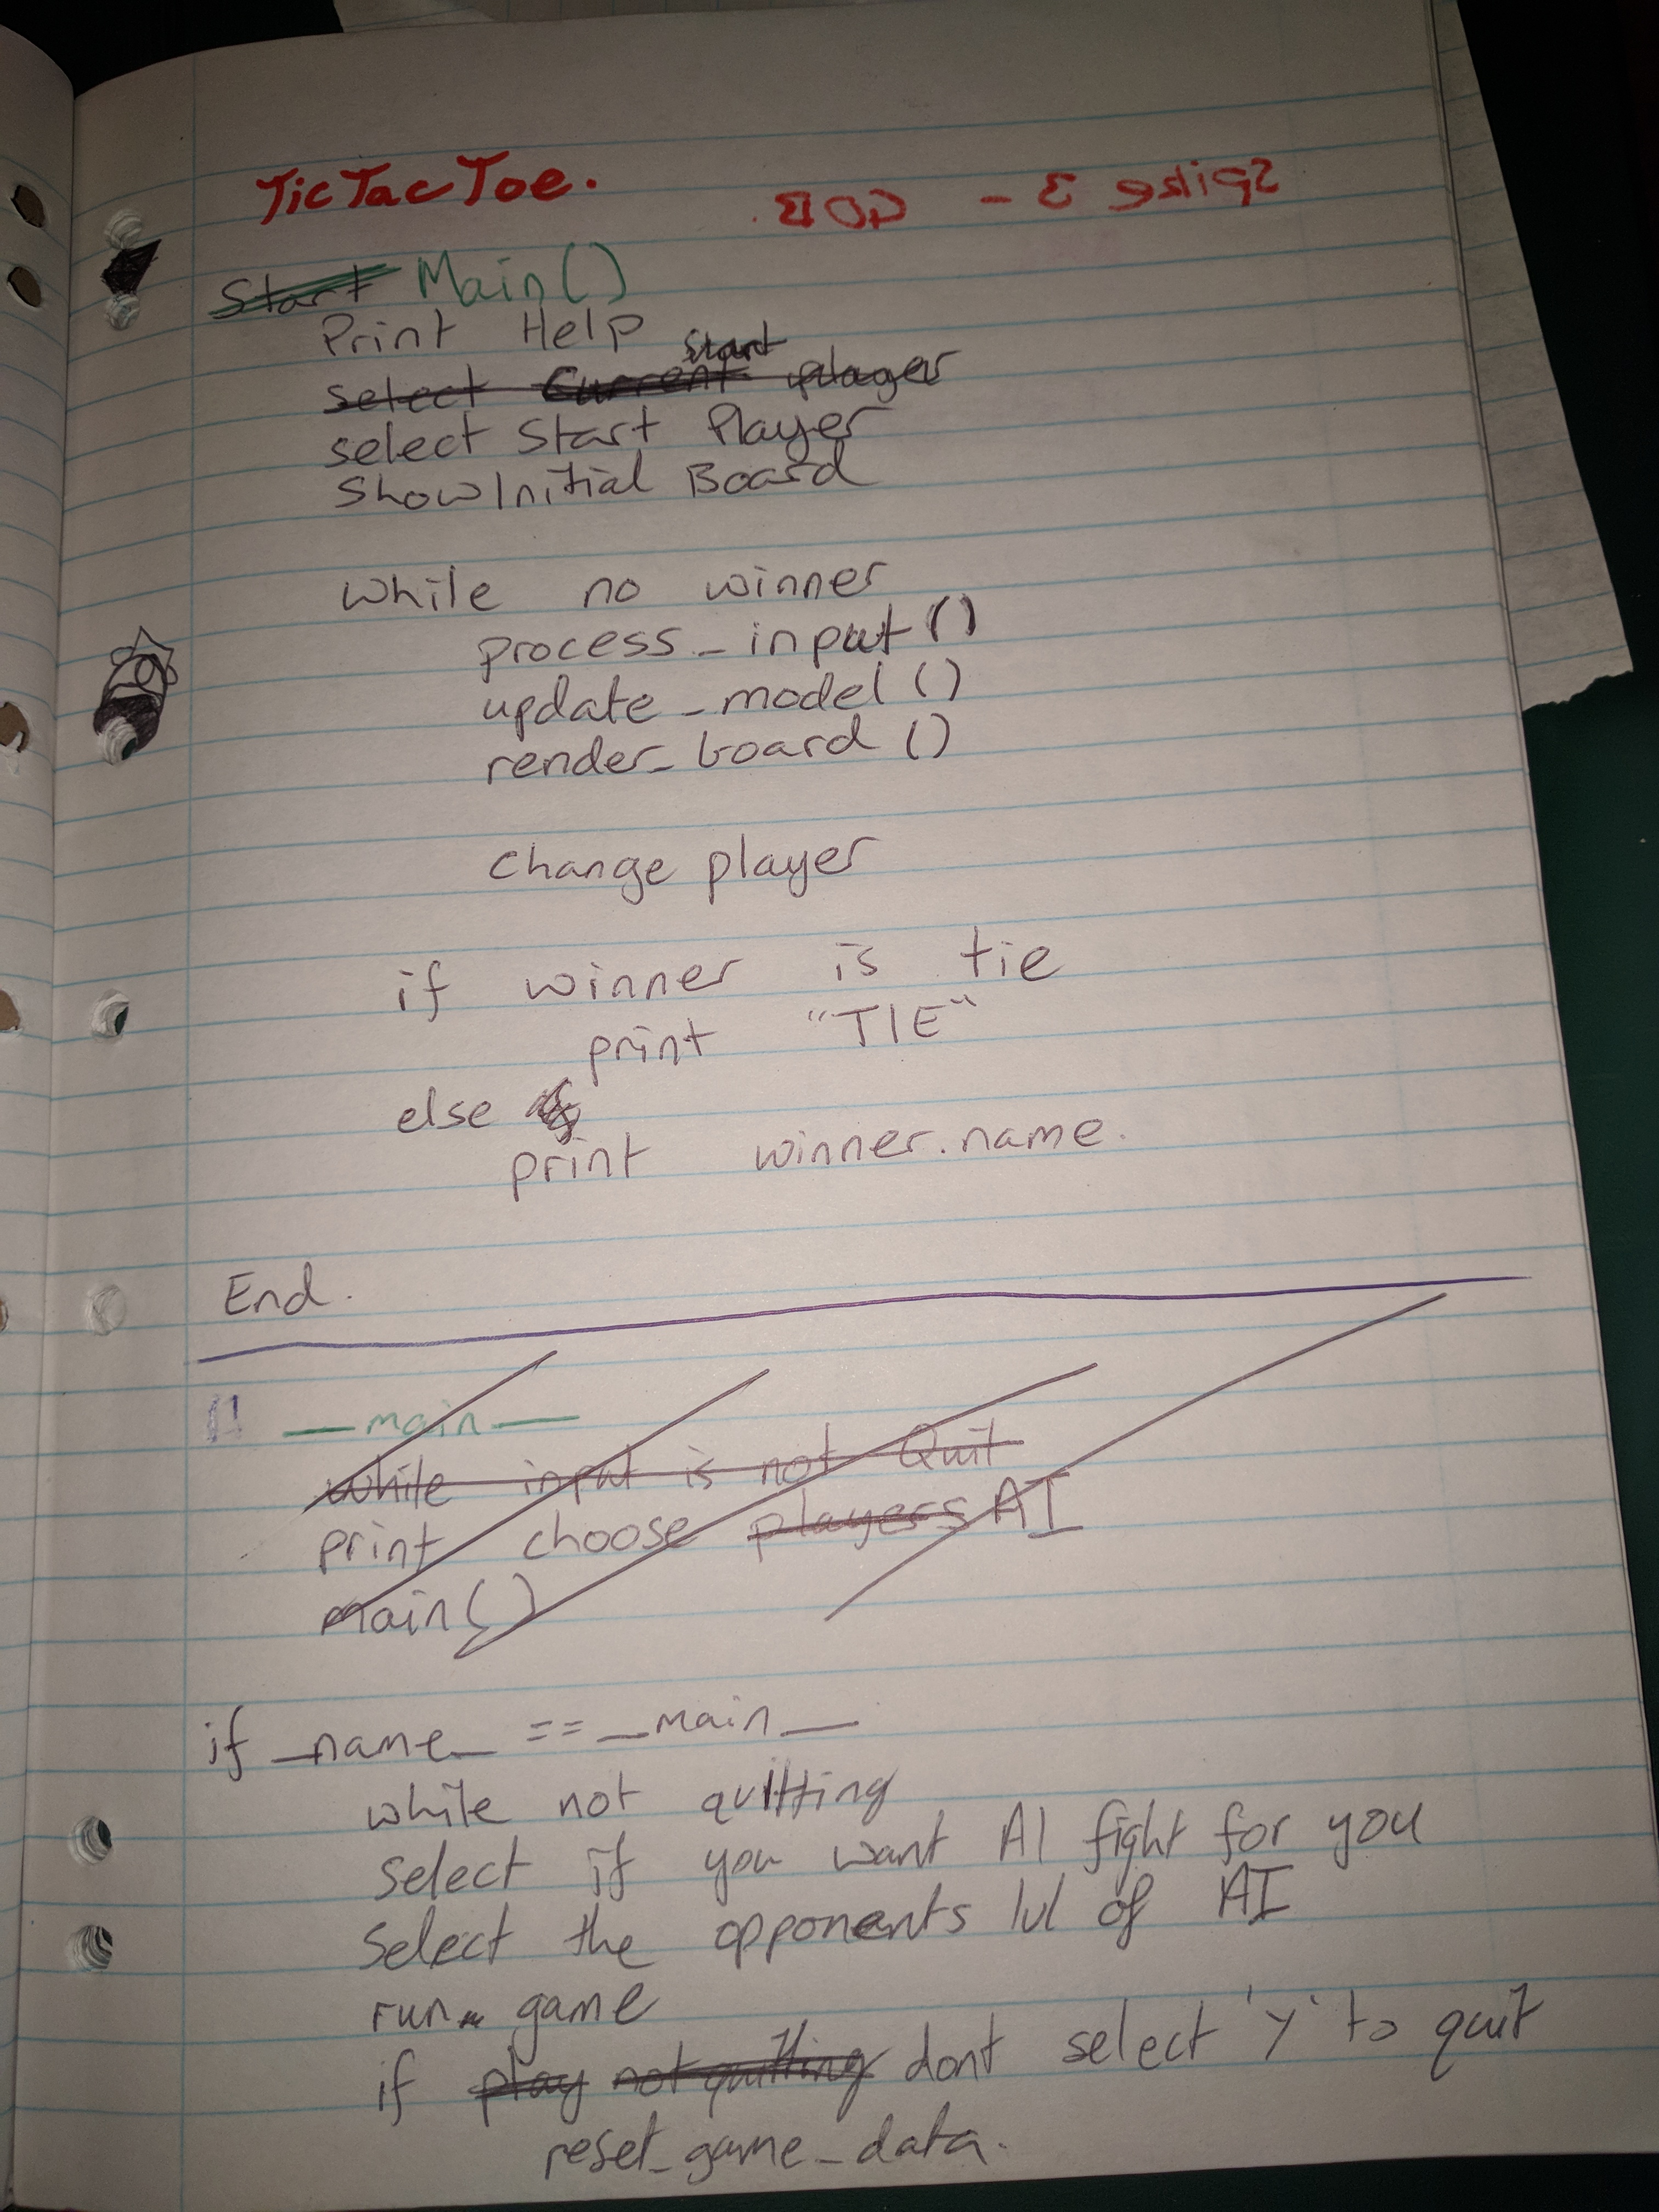 TicTacToe.
Spike 3 - GOB.
Start Main()
Print Help
select Current Start player
select Start Player
Show Initial Board
while no winner
process_input()
update_model()
render_board()
change player
if winner is tie
print "TIE"
else
print winner.name.
End.
__main__
while input is not Quit
print choose players AI
main()
if _name_ == __main__
while not quitting
select if you want AI fight for you
select the opponents lvl of AI
run game
if play not quitting dont select 'y' to quit
reset_game_data.